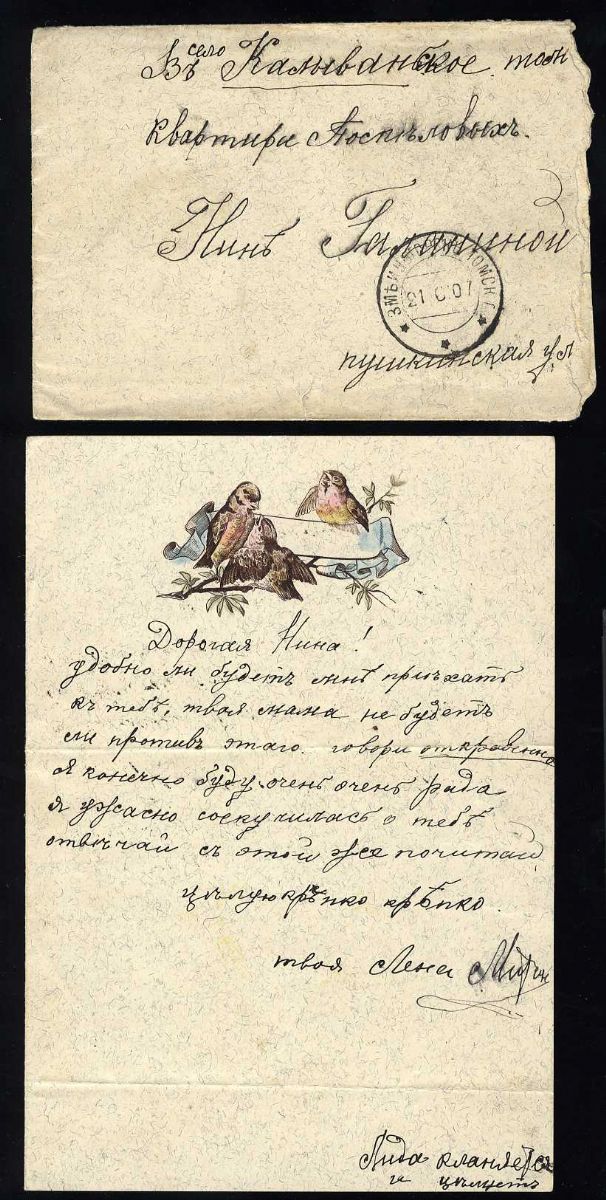 Въ село Калыванбское. том
квартира Поспѣловыхъ.
Нинѣ Галаниной
21 07
пушкинская ул
Дорогая Нина!
удобно ли будетъ мнѣ приѣхать
къ тебѣ, твоя мама не будетъ
ли противъ этаго. говори откровенно
я конечно буду очень очень рада
я ужасно соскучилась о тебѣ
отвѣчай съ этой же почитай
цѣлую крѣпко крѣпко.
твоя Лена
Лида кланяется
и цѣлуетъ